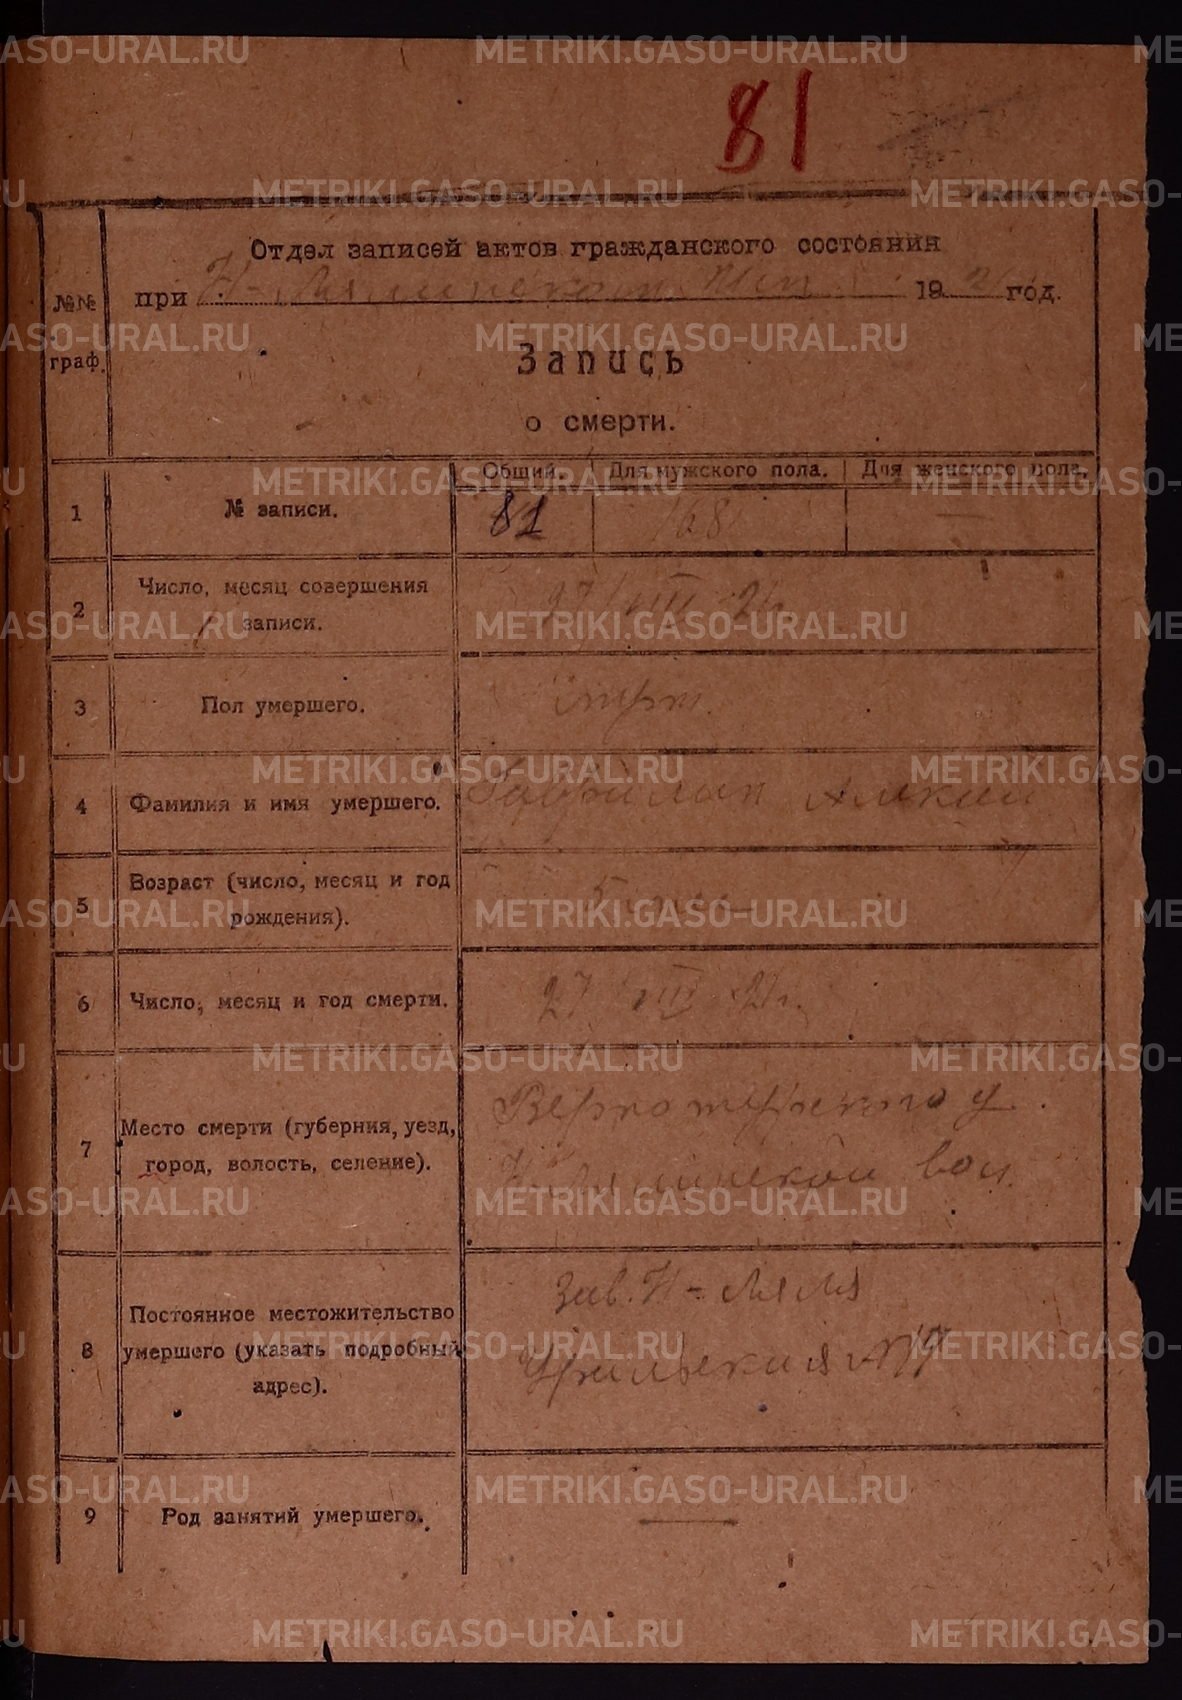 81
Отдел записей актов гражданского состояния
при Н-Лялинском 192 год.
№№ граф.
Запись
о смерти.
Общий. Для мужского пола. Для женского пола.
1 № записи. 81 68 —
2 Число, месяц совершения записи. 27/VIII-21г.
3 Пол умершего.
4 Фамилия и имя умершего.
5 Возраст (число, месяц и год рождения). 5
6 Число, месяц и год смерти. 27 VIII 21г.
7 Место смерти (губерния, уезд, город, волость, селение). Верхотурского у.
Н. Лялинской вол.
8 Постоянное местожительство умершего (указать подробный адрес). Зав. Н-Ляля
Уральская №
9 Род занятий умершего. —
METRIKI.GASO-URAL.RU